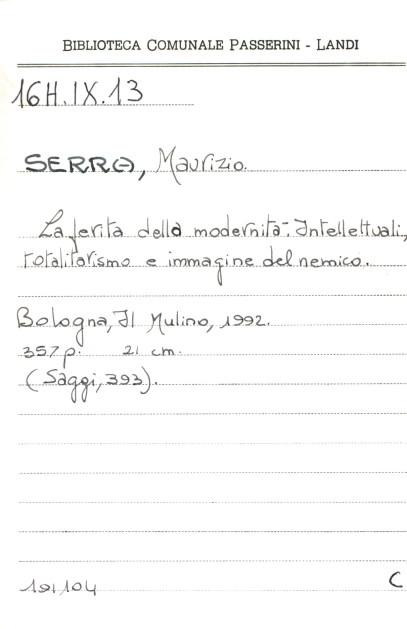 BIBLIOTECA COMUNALE PASSERINI - LANDI
16H.IX.13
SERRA, Maurizio.
La ferita della modernità. Intellettuali,
totalitarismo e immagine del nemico.
Bologna, Il Mulino, 1992.
357 p. 21 cm.
(Saggi, 393).
191104 C